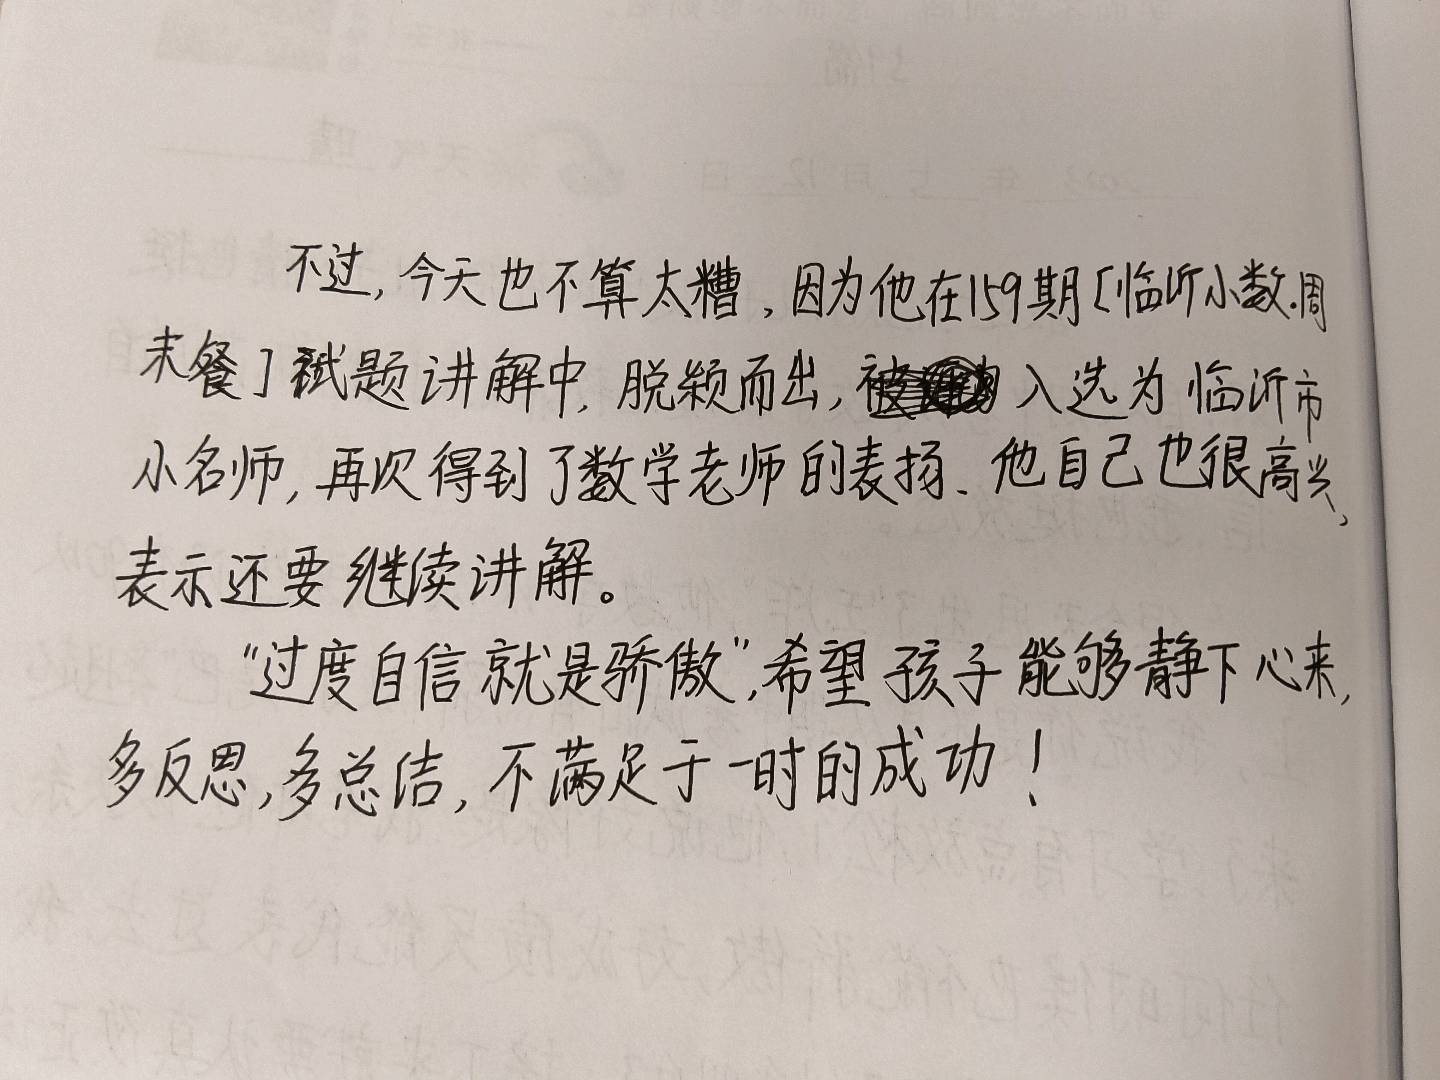 不过,今天也不算太糟,因为他在159期[临沂小数.周
末餐]试题讲解中,脱颖而出,入选为临沂市
小名师,再次得到了数学老师的表扬、他自己也很高兴,
表示还要继续讲解。
"过度自信就是骄傲",希望孩子能够静下心来,
多反思,多总结,不满足于一时的成功!